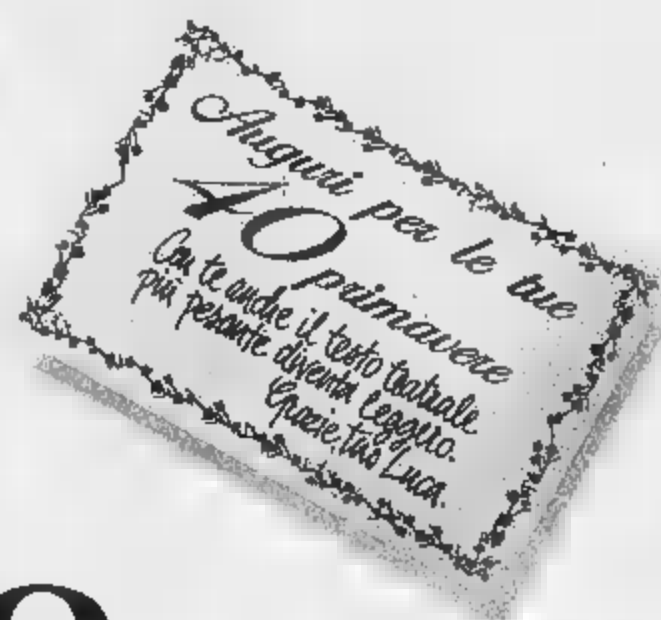 Auguri per le tue
40 primavere
Con te anche il testo teatrale
più pesante diventa leggero.
Grazie, tuo Luca.